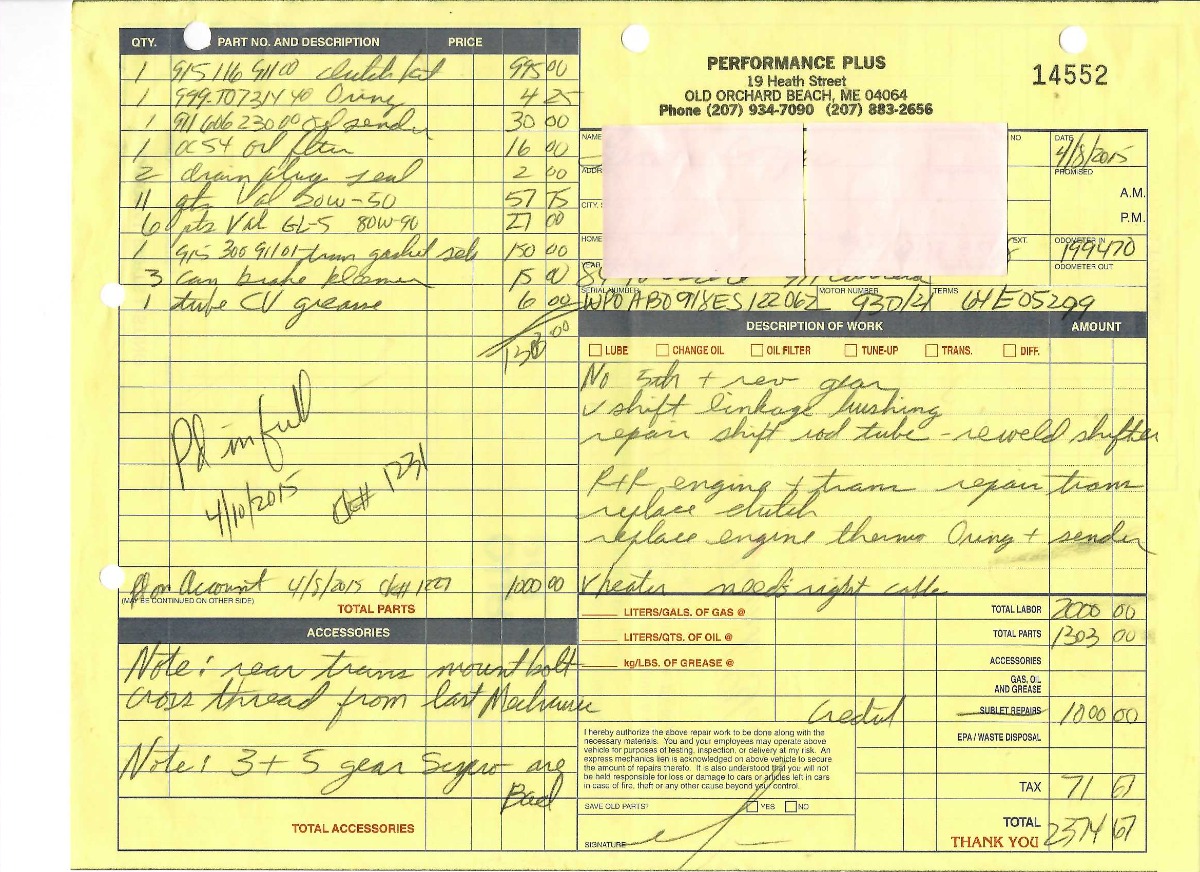 QTY. PART NO. AND DESCRIPTION PRICE
1 915 116 911 00 clutch kit 995 00
1 999.707 314 40 Oring 4 25
1 911 606 230 00 oil sender 30 00
1 OC54 oil filter 16 00
2 drain plug seal 2 00
11 qts Val 20W-50 57 75
6 pts Val GL-5 80W-90 27 00
1 915 300 911 01 tran gasket set 150 00
3 can brake kleener 15 00
1 tube CV grease 6 00
1303 00
Pd in full
4/10/2015 ck# 1231
Pd on Account 4/8/2015 ck# 1227 1000 00
(MAY BE CONTINUED ON OTHER SIDE)
TOTAL PARTS
ACCESSORIES
Note: rear trans mount bolt
cross thread from last Mechanic
Note: 3 + 5 gear Syncro are
Bad
TOTAL ACCESSORIES
PERFORMANCE PLUS
19 Heath Street
OLD ORCHARD BEACH, ME 04064
Phone (207) 934-7090 (207) 883-2656
14552
NAME
NO
DATE
4/8/2015
ADDR
PROMISED
A.M.
CITY, S
P.M.
HOME
EXT.
ODOMETER IN
199470
YEAR
911 Carrera
ODOMETER OUT
SERIAL NUMBER MOTOR NUMBER TERMS
WPOAB0918ES122062 930/21 64E05299
DESCRIPTION OF WORK AMOUNT
LUBE CHANGE OIL OIL FILTER TUNE-UP TRANS. DIFF.
No 5th + rev gear
✓ shift linkage bushing
repair shift rod tube - reweld shifter
R+R engine + trans repair trans
replace clutch
replace engine thermo Oring + sender
✓ heater needs right cable
LITERS/GALS. OF GAS @
LITERS/QTS. OF OIL @
kg/LBS. OF GREASE @
TOTAL LABOR 2000 00
TOTAL PARTS 1303 00
ACCESSORIES
GAS, OIL
AND GREASE
Credit SUBLET REPAIRS 1000 00
EPA / WASTE DISPOSAL
TAX 71 67
TOTAL 2374 67
THANK YOU
I hereby authorize the above repair work to be done along with the
necessary materials. You and your employees may operate above
vehicle for purposes of testing, inspection, or delivery at my risk. An
express mechanics lien is acknowledged on above vehicle to secure
the amount of repairs thereto. It is also understood that you will not
be held responsible for loss or damage to cars or articles left in cars
in case of fire, theft or any other cause beyond your control.
SAVE OLD PARTS? YES NO
SIGNATURE